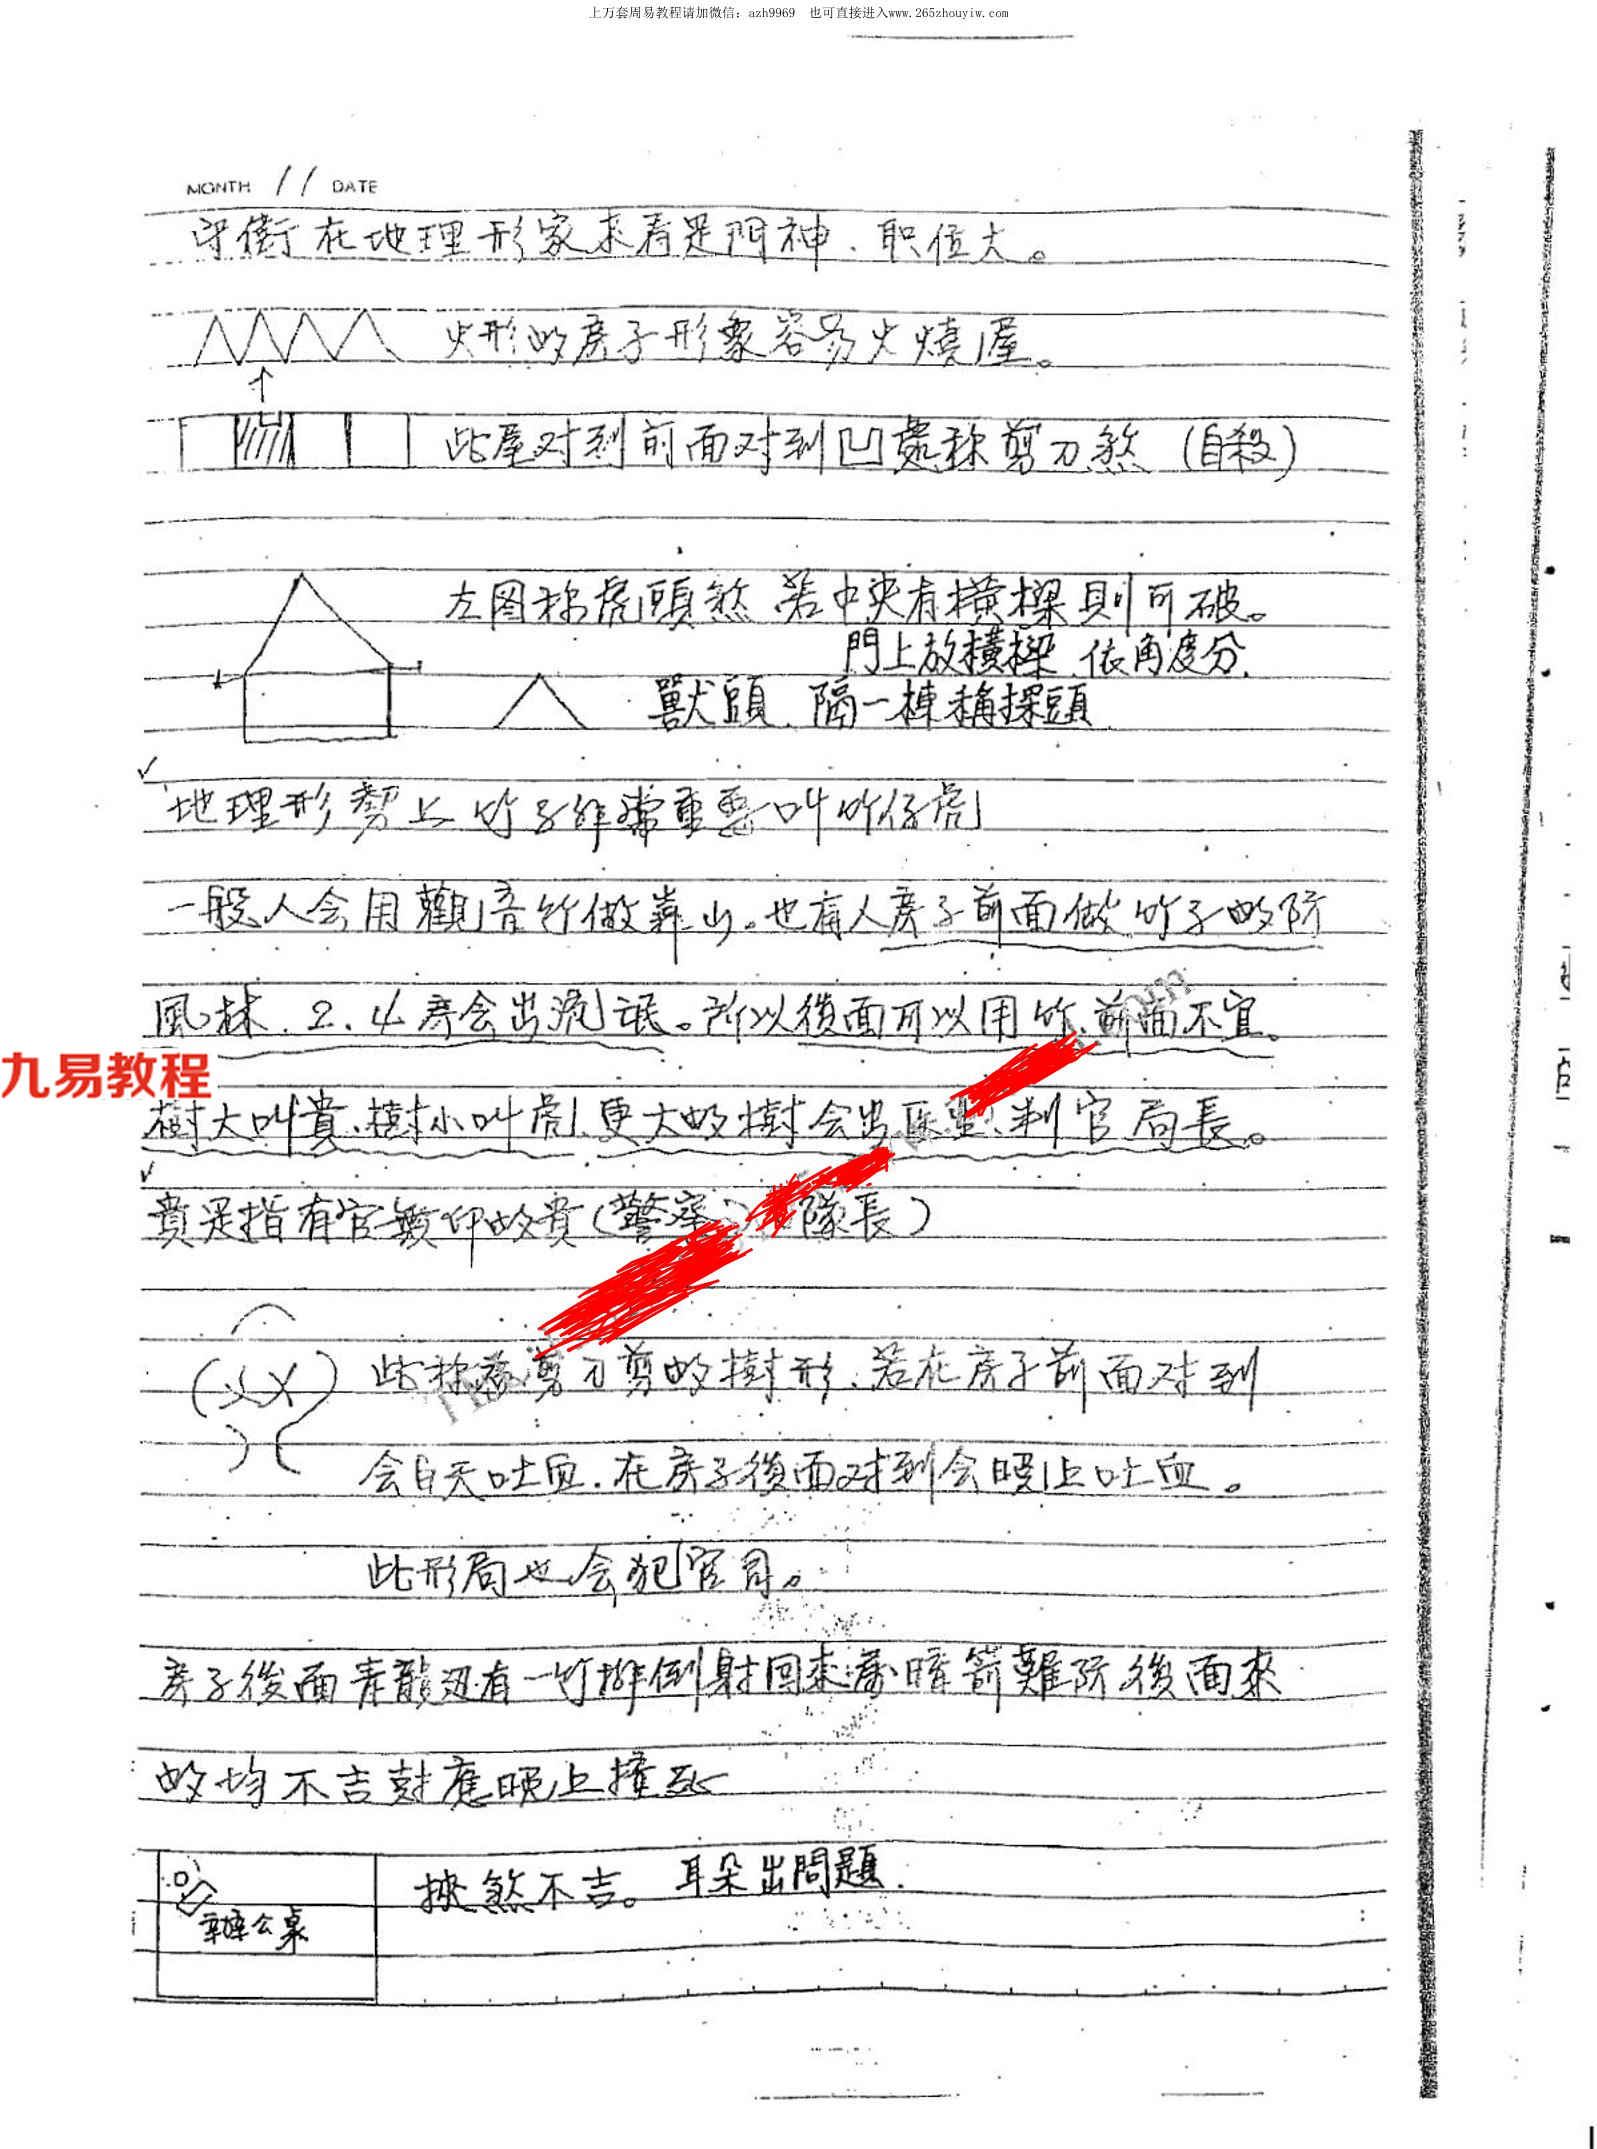 上万套周易教程请加微信：azh9969 也可直接进入www.265zhouyiw.com
MONTH 11 DATE
守衛在地理形家來看是門神、职位大。
火形的房子形象容易火燒屋。
此屋对到前面对到凹處称剪刀煞（自殺）
左图称虎頭煞 若中央有橫樑則可破。
門上放橫樑、依角度分、
獸頭、隔一棟稱探頭
地理形勢上竹子非常重要叫竹仔虎
一般人会用觀音竹做靠山。也有人房子前面做竹子的防
風林、2、4房会出流氓。所以後面可以用竹、前面不宜。
九易教程
樹大叫貴、樹小叫虎、更大的樹会出医生、判官局長。
貴是指有官無印的貴（警察、隊長）
此称為剪刀剪的樹形、若在房子前面对到
会白天吐血、在房子後面对到会晚上吐血。
此形局也会犯官司。
房子後面青龍边有一竹排倒射回來為暗箭難防後面來
的均不吉對應晚上撞
挾煞不吉。耳朵出問題.
辦公桌